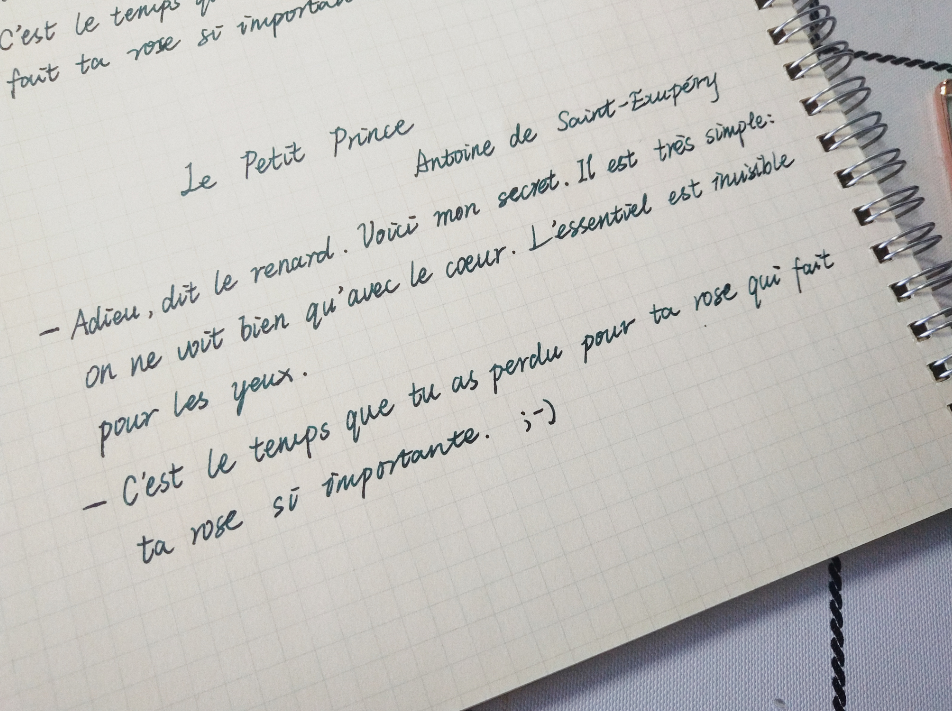 C'est le temps
fait ta rose si
Le Petit Prince
Antoine de Saint-Exupéry
- Adieu, dit le renard. Voici mon secret. Il est très simple:
on ne voit bien qu'avec le cœur. L'essentiel est invisible
pour les yeux.
- C'est le temps que tu as perdu pour ta rose qui fait
ta rose si importante. ;-)